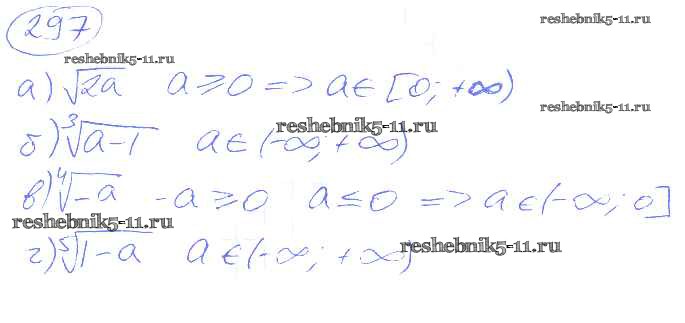 297
reshebnik5-11.ru
reshebnik5-11.ru
а) √2a a ≥ 0 => a ∈ [0; +∞)
reshebnik5-11.ru
б) ∛a-1 a ∈ (-∞; +∞)
reshebnik5-11.ru
в) ∜-a -a ≥ 0 a ≤ 0 => a ∈ (-∞; 0]
reshebnik5-11.ru
г) ⁵√1-a a ∈ (-∞; +∞)
reshebnik5-11.ru